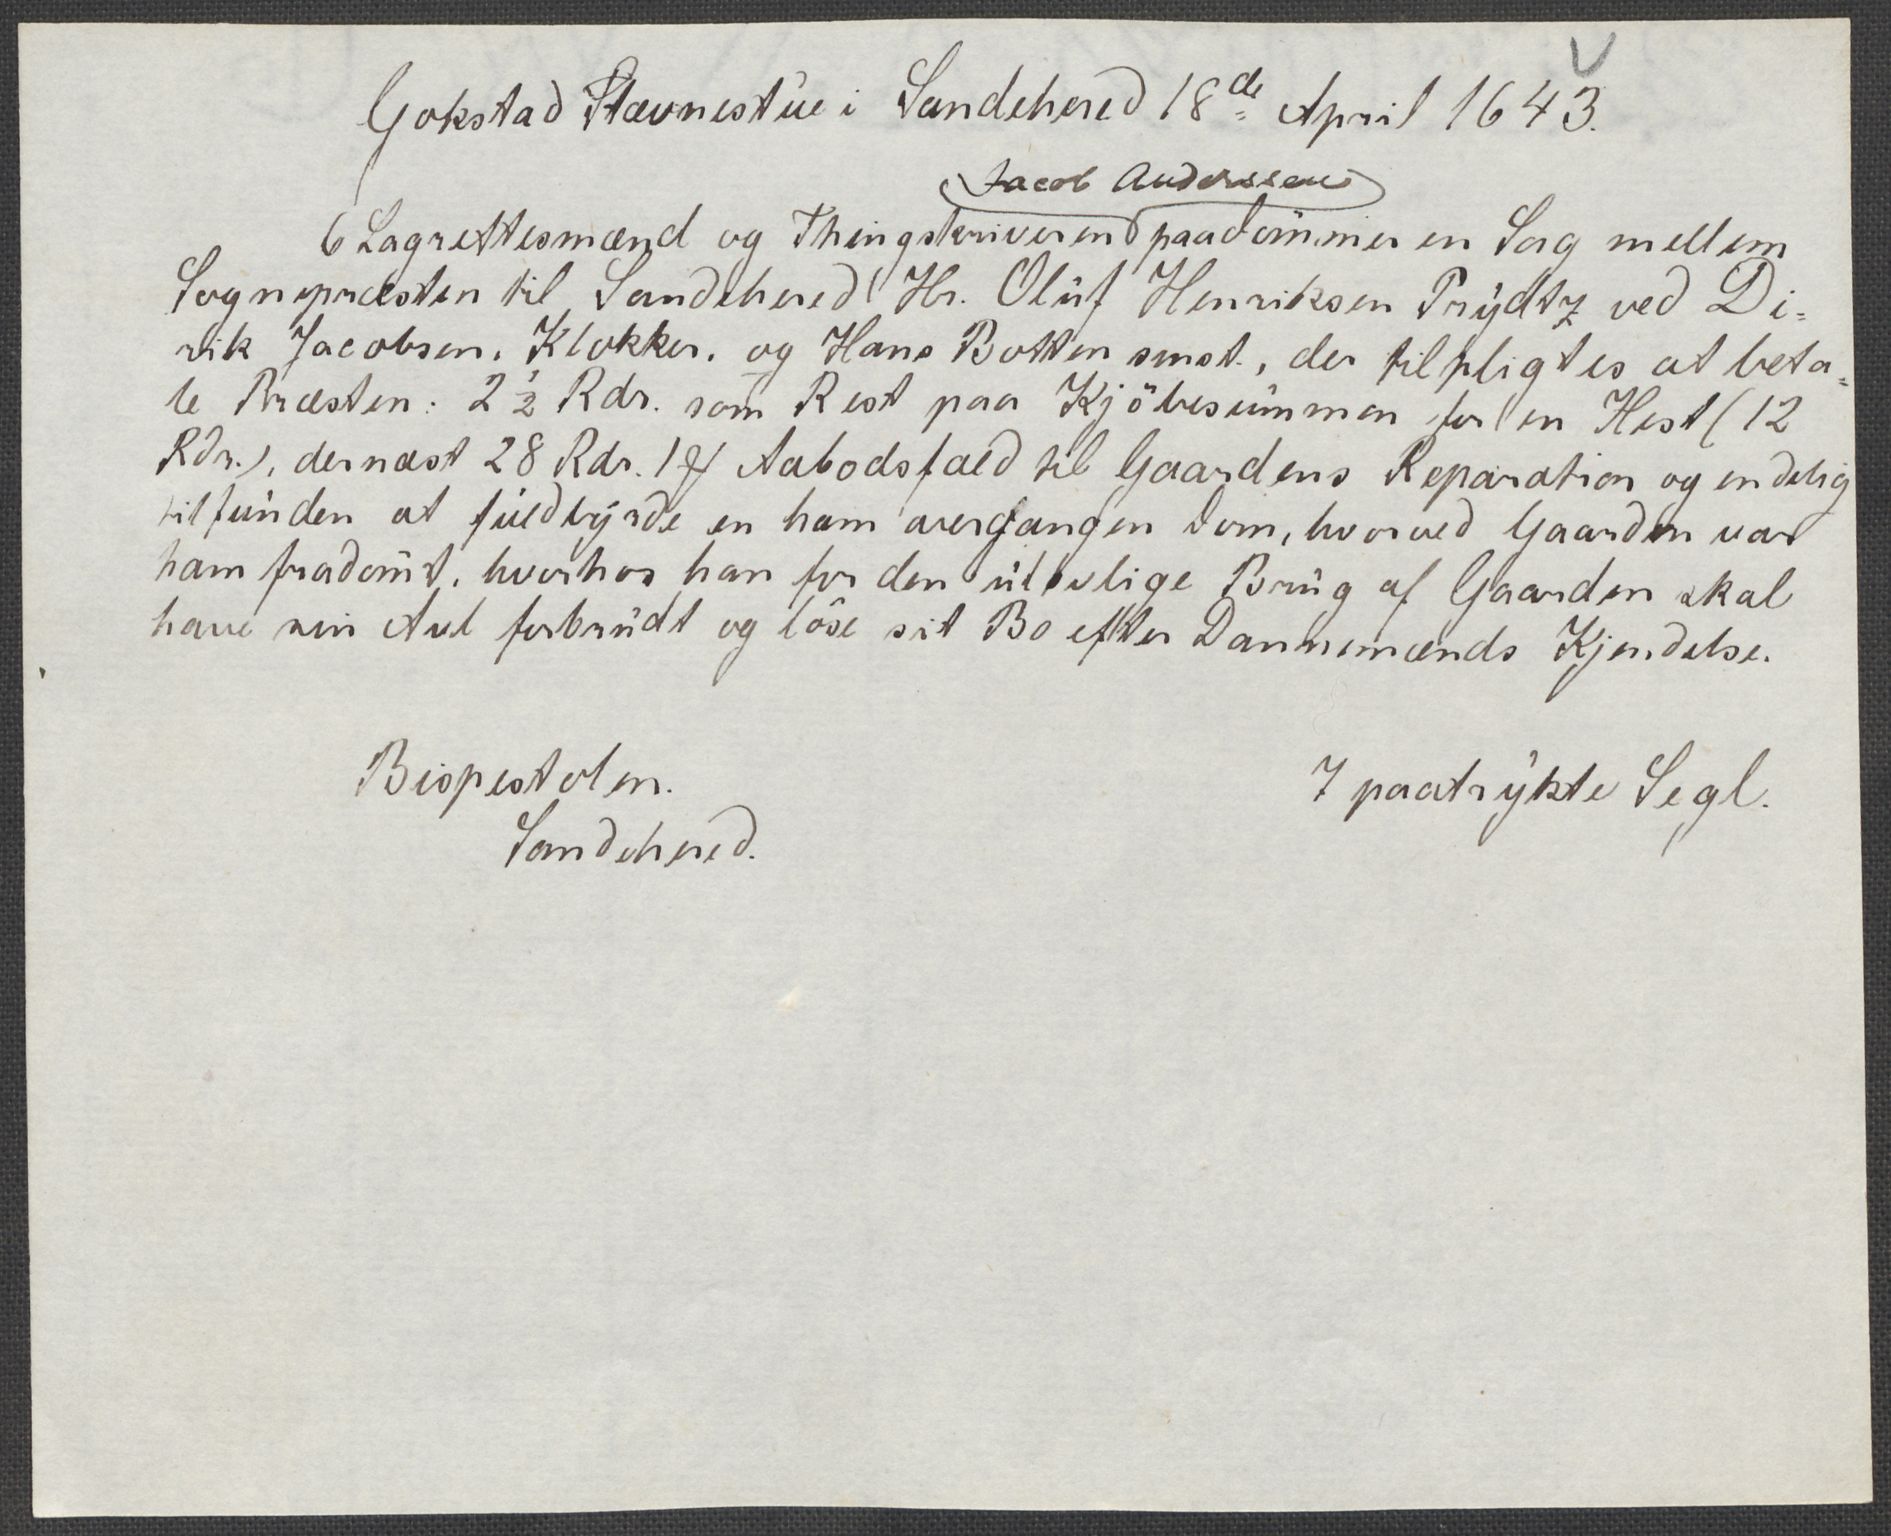 Gokstad Stævnestue i Sandehered 18de April 1643.
Jacob Anderssen
6 Lagrettesmænd og Thingskriveren paadömmer en Sag mellem
Sognepræsten til Sandehered Hr. Oluf Henriksen Prydtz ved Di=
rik Jacobsen, Klokker, og Hans Botten smst., der tilpligtes at beta=
le Præsten: 2 1/2 Rdr. som Rest paa Kjöbesummen for en Hest (12
Rdr.), dernæst 28 Rdr. 1 Aabodsfald til Gaardens Reparation og endelig
tilfunden at fuldbyrde en ham overgangen Dom, hvorved Gaarden var
ham fradömt, hvorhos han for den ulovlige Brug af Gaarden skal
have sin Avl forbrudt og löse sit Bo efter Dannemænds Kjendelse.
Bispestolen. 7 paatrykte Segl.
Sandehered.